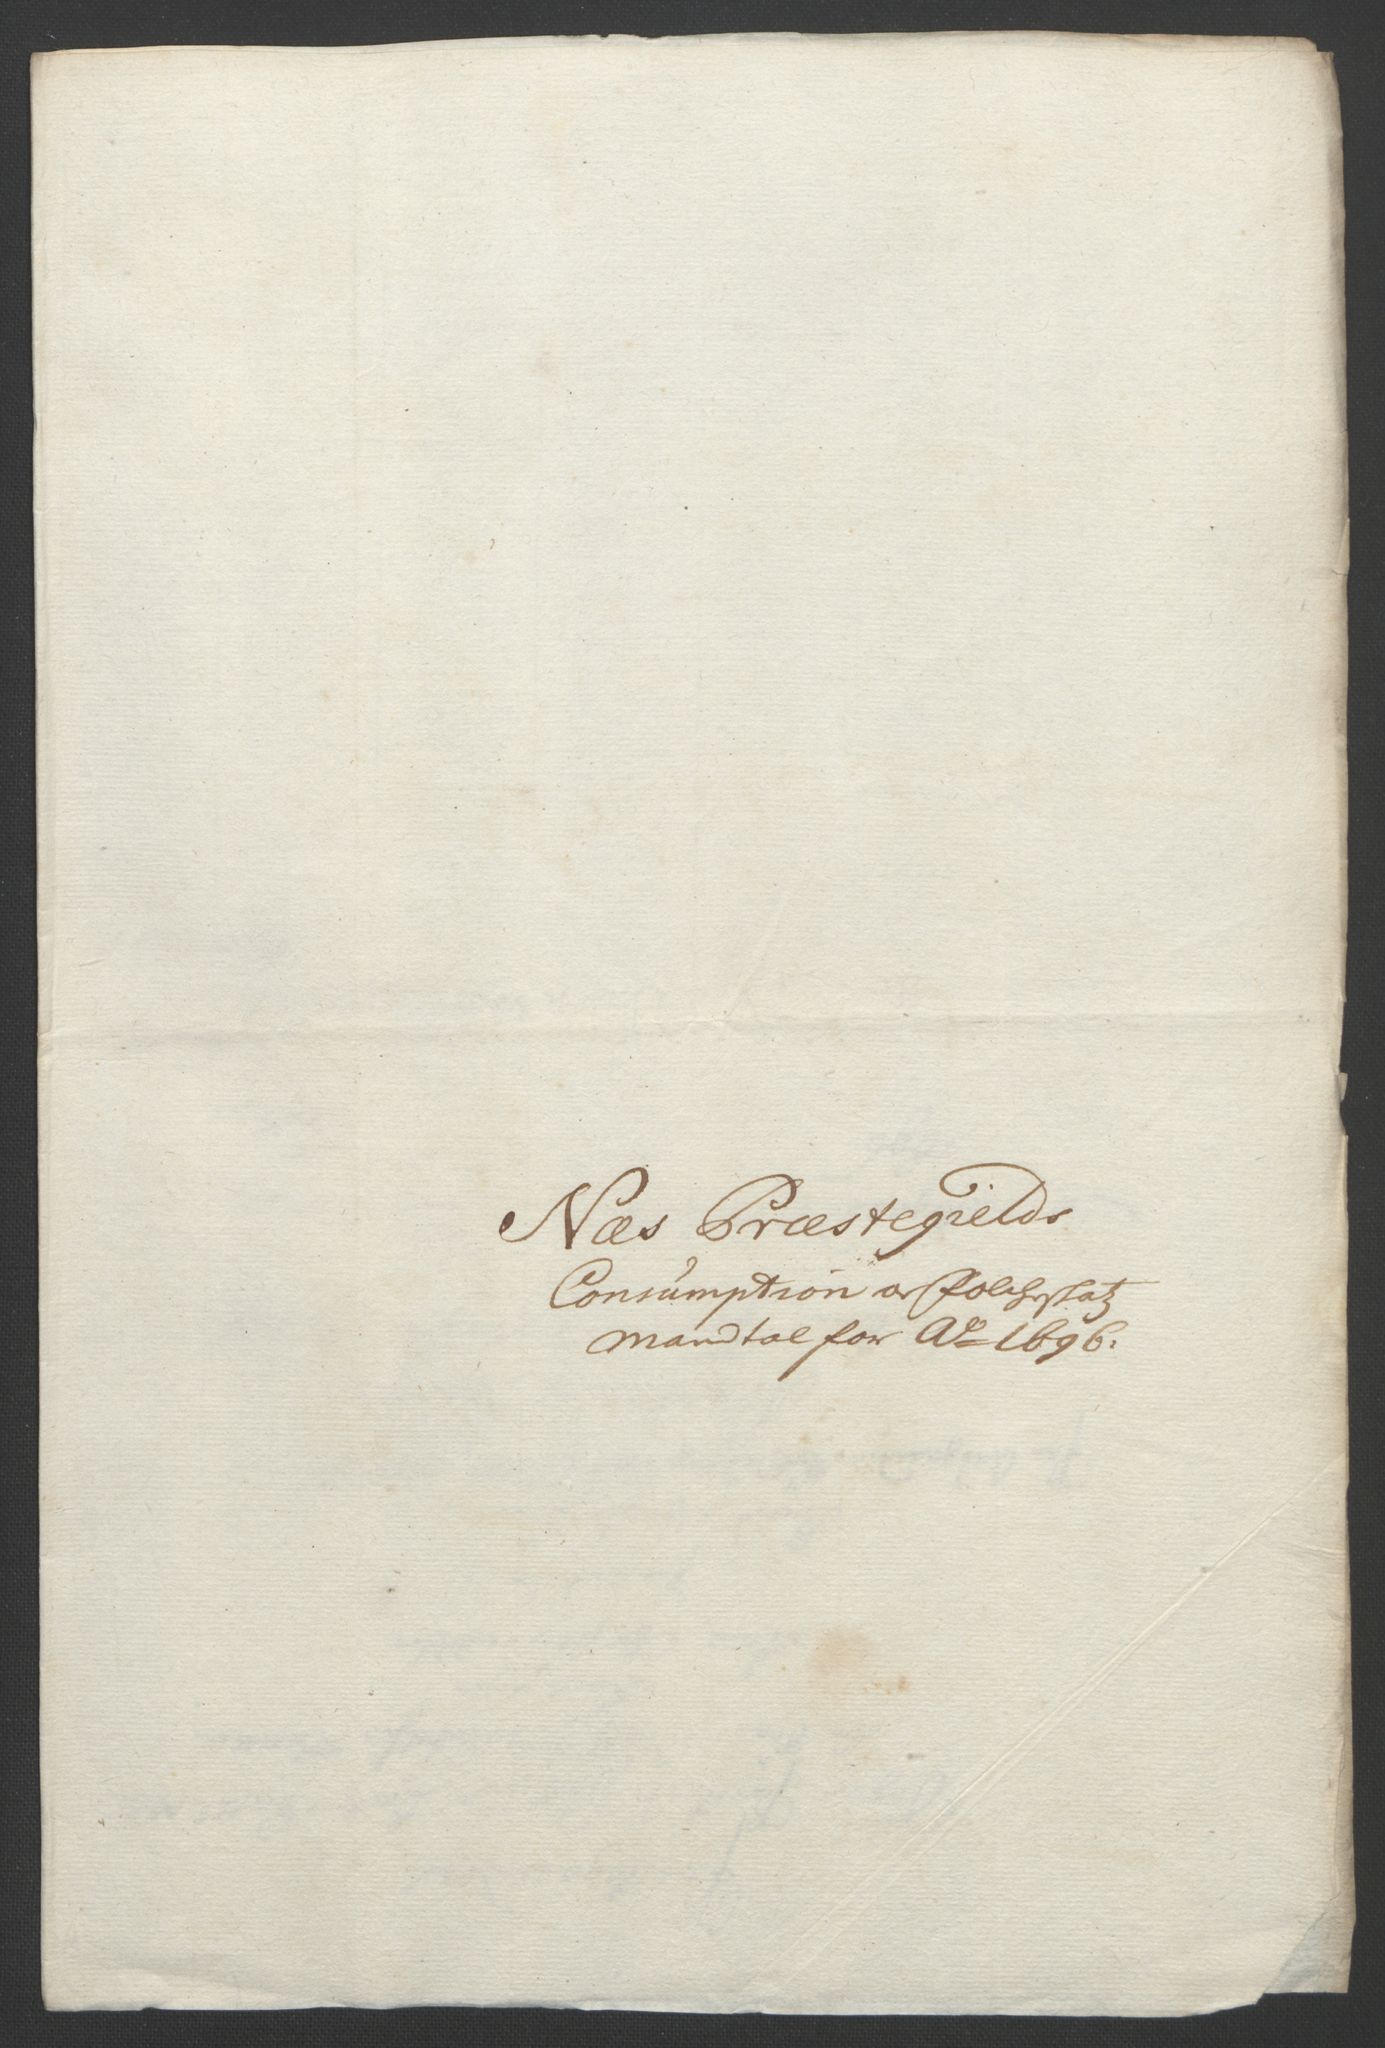 Næs Præstegields
Consumption oc folcheskatz
mandtal for Ao 1696.